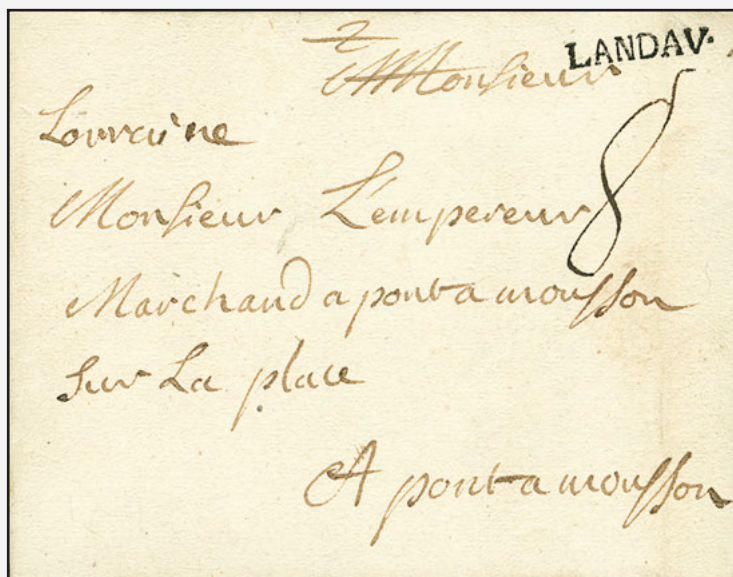 2
Monsieur
LANDAV.
Lorraine
Monsieur L'empereur
8
Marchand a pont a mousson
Sur La place
A pont a mousson